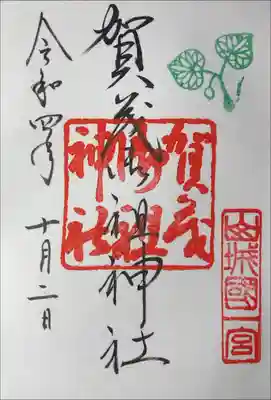 山城國一宮
賀茂御祖神社
賀茂
御祖
神社
令和四年
十月二日